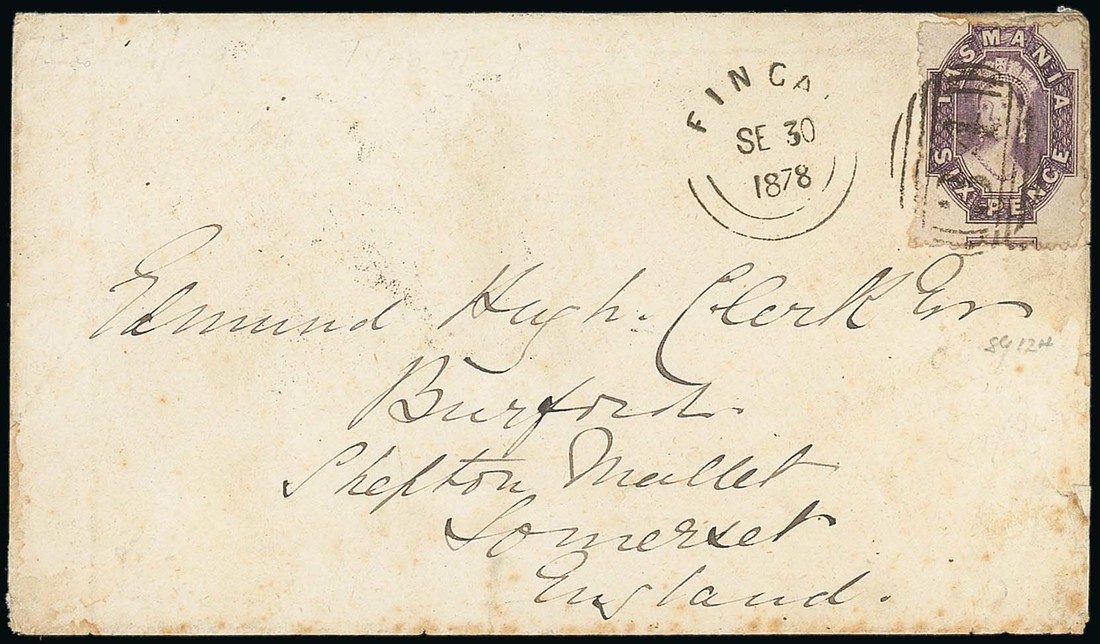 TASMANIA
SIX PENCE
FINGA
SE 30
1878
Edmund Hugh Clerk Esr
Burford
Shepton Mallet
Somerset
England.